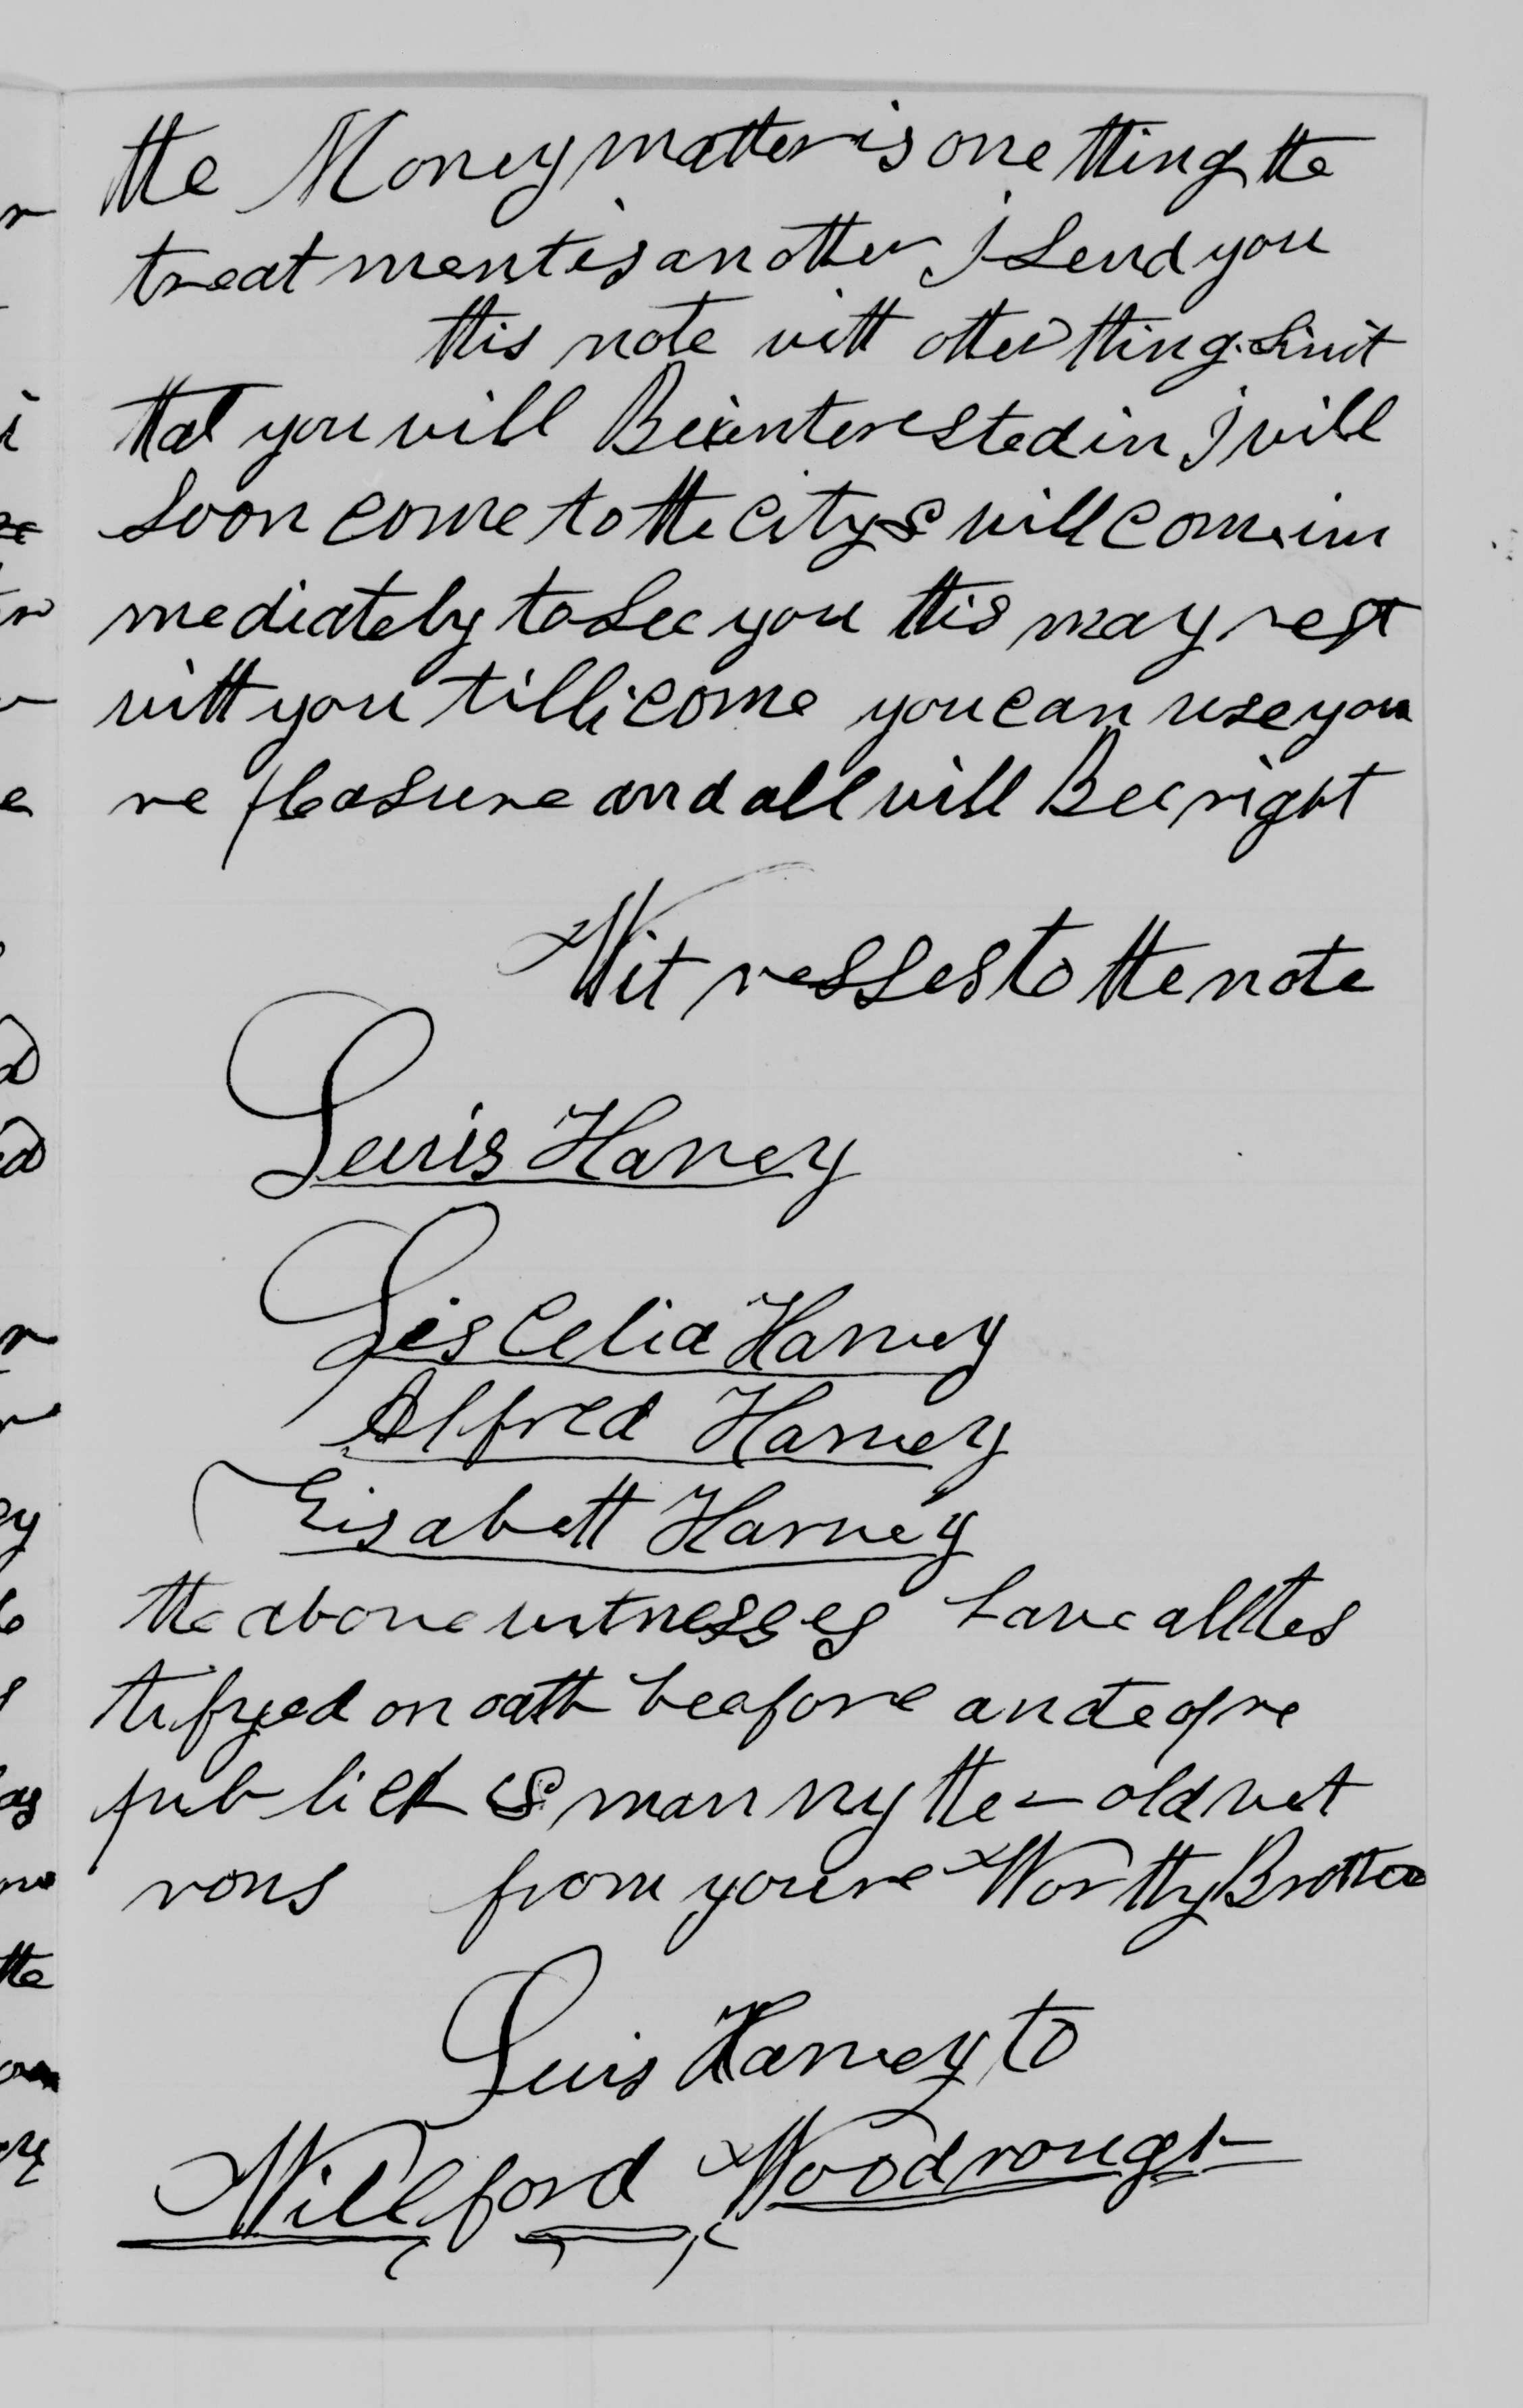 the Money matter is one thing the
treat ment is an other I send you
this note with other thing in it
that you will Be interested in I will
soon come to the city & will come im
mediately to see you this may rest
with you till i come you can use you
re pleasure and all will Bee right
Wit nesses to the note
Lewis Harvey
Liscelia Harvey
Alfred Harvey
Eisabeth Harvey
the above witnesses have all tes
tifyed on oath beafore a note
publick & manny the old vet
rons from youre Worthy Brother
Luis Harvey to
Willford Woodrough